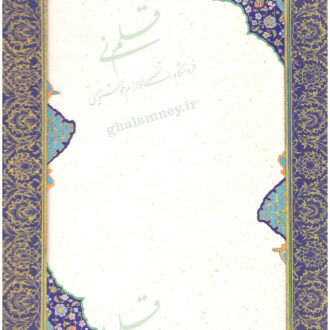 قلم نی
فروشگاه تخصصی لوازم خوشنویسی
ghalamney.ir